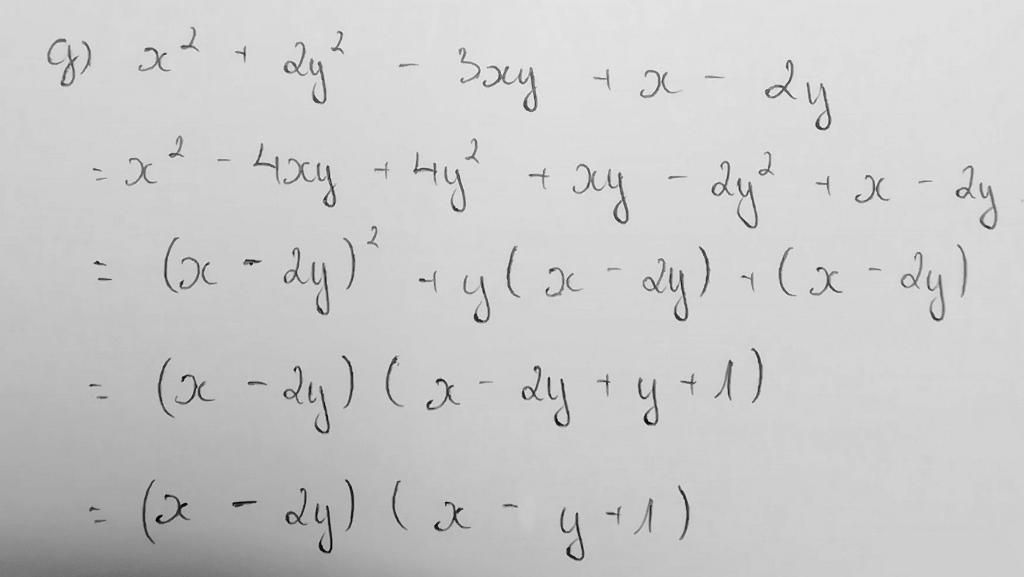 g) x² + 2y² - 3xy + x - 2y
= x² - 4xy + 4y² + xy - 2y² + x - 2y
= (x - 2y)² + y(x - 2y) + (x - 2y)
= (x - 2y)(x - 2y + y + 1)
= (x - 2y)(x - y + 1)